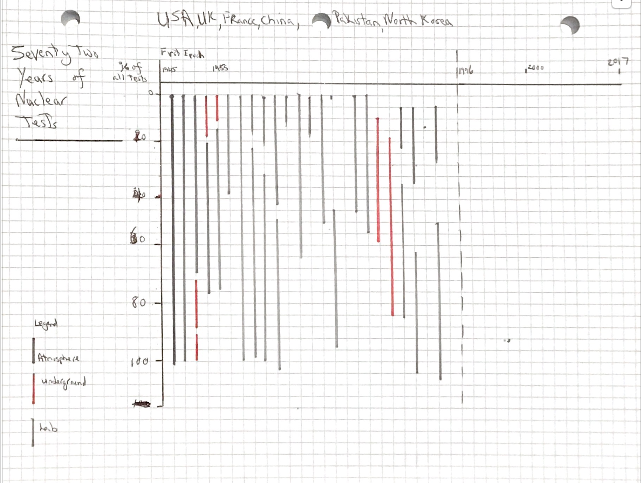 USA, UK, France, China, Pakistan, North Korea
Seventy Two
Years of
Nuclear
Tests
% of
all Tests
1945
1953
1996
2000
2017
0
20
40
60
80
100
Legend
Atmosphere
underground
Lab